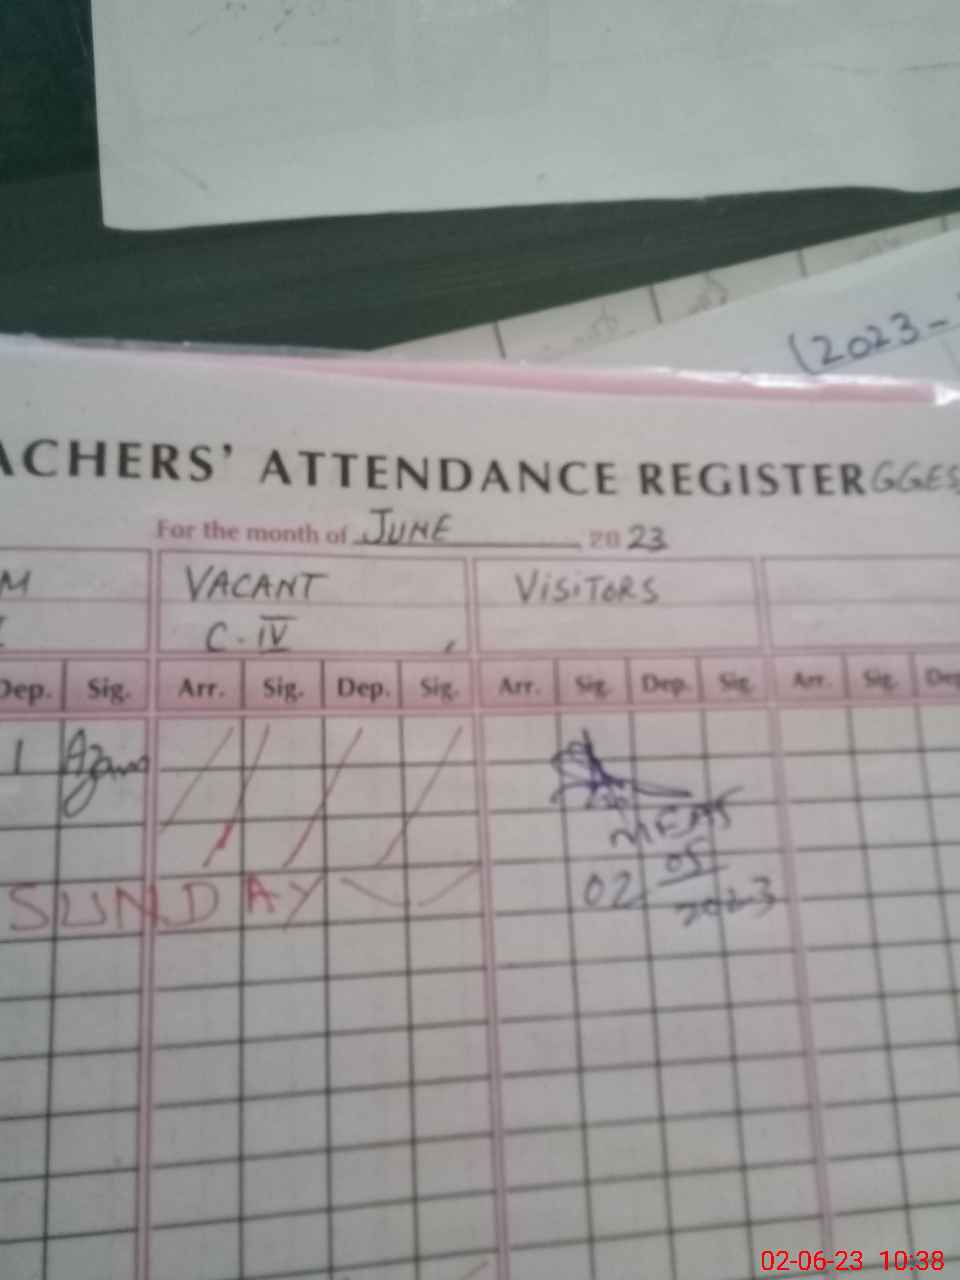 (2023-
ACHERS' ATTENDANCE REGISTER GGES
For the month of JUNE 2023
M VACANT VISITORS
C-IV
Dep. Sig. Arr. Sig. Dep. Sig. Arr. Sig. Dep. Sig. Arr. Sig. Dep
1
MEAS
SUNDAY 02 05 2023
02-06-23 10:38